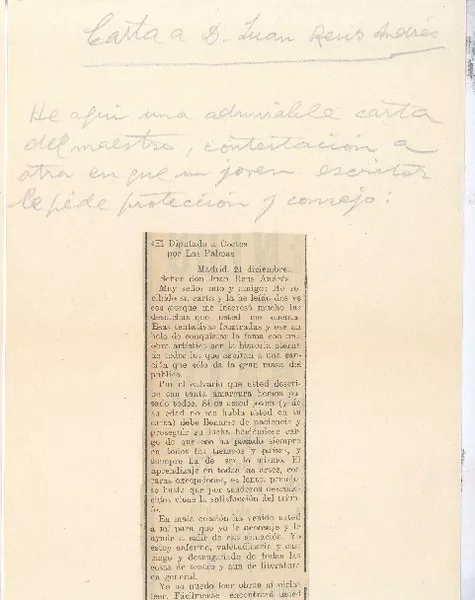 Carta a D. Juan Reus Andrés
He aquí una admirable carta
del maestro, contestación a
otra en que un joven escritor
le pide protección y consejo:
«El Diputado a Cortes
por Las Palmas
Madrid, 21 diciembre.
Señor don Juan Reus Andrés
Muy señor mío y amigo: He re-
cibido su carta y la he leído dos ve-
ces porque me interesó mucho las
desdichas que usted me cuenta.
Esas tentativas frustradas y ese an-
helo de conquistar la fama con una
obra artística son la historia eterna
de todos los que aspiran a una san-
ción que sólo da la gran masa del
público.
Por el calvario que usted descri-
be con tanta amargura hemos pa-
sado todos. Si es usted joven (y de
su edad no me habla usted en su
carta) debe llenarse de paciencia y
proseguir su lucha haciéndose car-
go de que eso ha pasado siempre
en todos los tiempos y países, y
siempre ha de ser lo mismo. El
aprendizaje en todas las artes, con
raras excepciones, es lento, penado
se hasta que por senderos descono-
cidos viene la satisfacción del triun-
fo.
En mala ocasión ha venido usted
a mí para que yo le aconseje y le
ayude a salir de esa situación. Yo
estoy enfermo, valetudinario y can-
sado y desengañado de todas las
cosas de teatro y aun de literatura
en general.
Yo no puedo leer obras ni oírlas
leer. Fácilmente encontrará usted